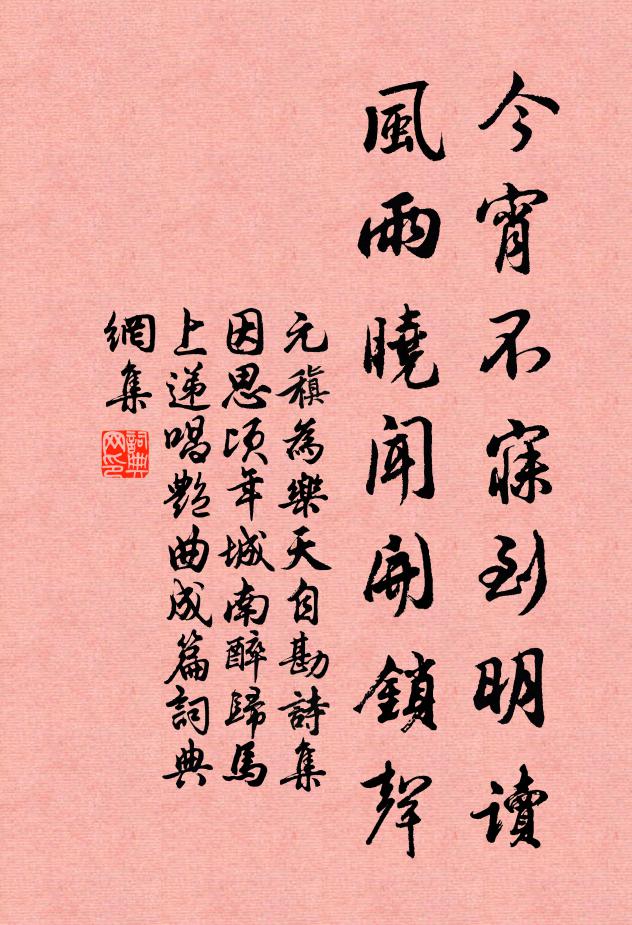 今宵不寐到明讀
風雨曉聞開鎖聲
元稹為樂天自勘詩集
因思頃年城南醉歸馬
上遞唱艷曲成篇詞典
網集
詞典
網印